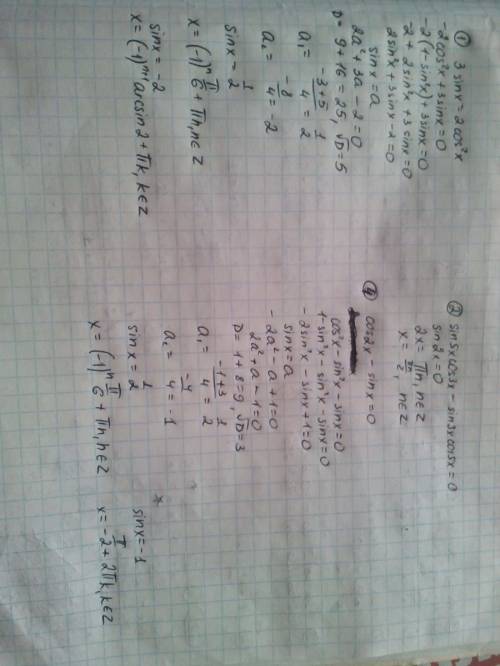 ① 3 sinx = 2 cos²x
-2cos²x + 3 sinx = 0
-2(1-sin²x) + 3sinx = 0
-2 + 2sin²x + 3 sinx = 0
2sin²x + 3sinx - 2 = 0
sinx = a
2a² + 3a - 2 = 0
D = 9 + 16 = 25, √D = 5
a₁ = (-3+5)/4 = 1/2
a₂ = -8/4 = -2
sinx = 1/2
x = (-1)ⁿ π/6 + πn, n∈z
sinx = -2
x = (-1)ⁿ⁺¹ arcsin2 + πk, k∈z
② sin5x cos3x - sin3x cos5x = 0
sin2x = 0
2x = πn, n∈z
x = πn/2, n∈z
④ cos2x - sinx = 0
cos²x - sin²x - sinx = 0
1 - sin²x - sin²x - sinx = 0
-2sin²x - sinx + 1 = 0
sinx = a
-2a² - a + 1 = 0
2a² + a - 1 = 0
D = 1 + 8 = 9, √D = 3
a₁ = (-1+3)/4 = 1/2
a₂ = -4/4 = -1
sinx = 1/2
x = (-1)ⁿ π/6 + πn, n∈z
sinx = -1
x = -π/2 + 2πk, k∈z